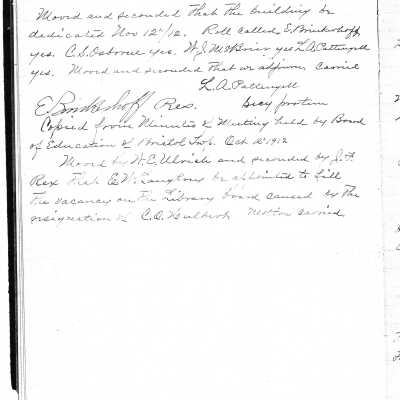 Moved and seconded that the building be
dedicated Nov 12"/12. Roll called, E. Brinkerhoff,
yes. C.S. Osborne yes. W.J. McBrier yes L.A. Pattengell
yes. Moved and seconded that we adjourn, carried
L.A. Pattengell
E Brinkerhoff Pres. Secy protem
Copied from Minutes of Meeting held by Board
of Education of Bristol Twp. Oct 1912
Moved by W.C. Ulrich and seconded by J.F.
Rex that be appointed to fill
the vacancy on the Library board caused by the
resignation of C.O. Motion carried